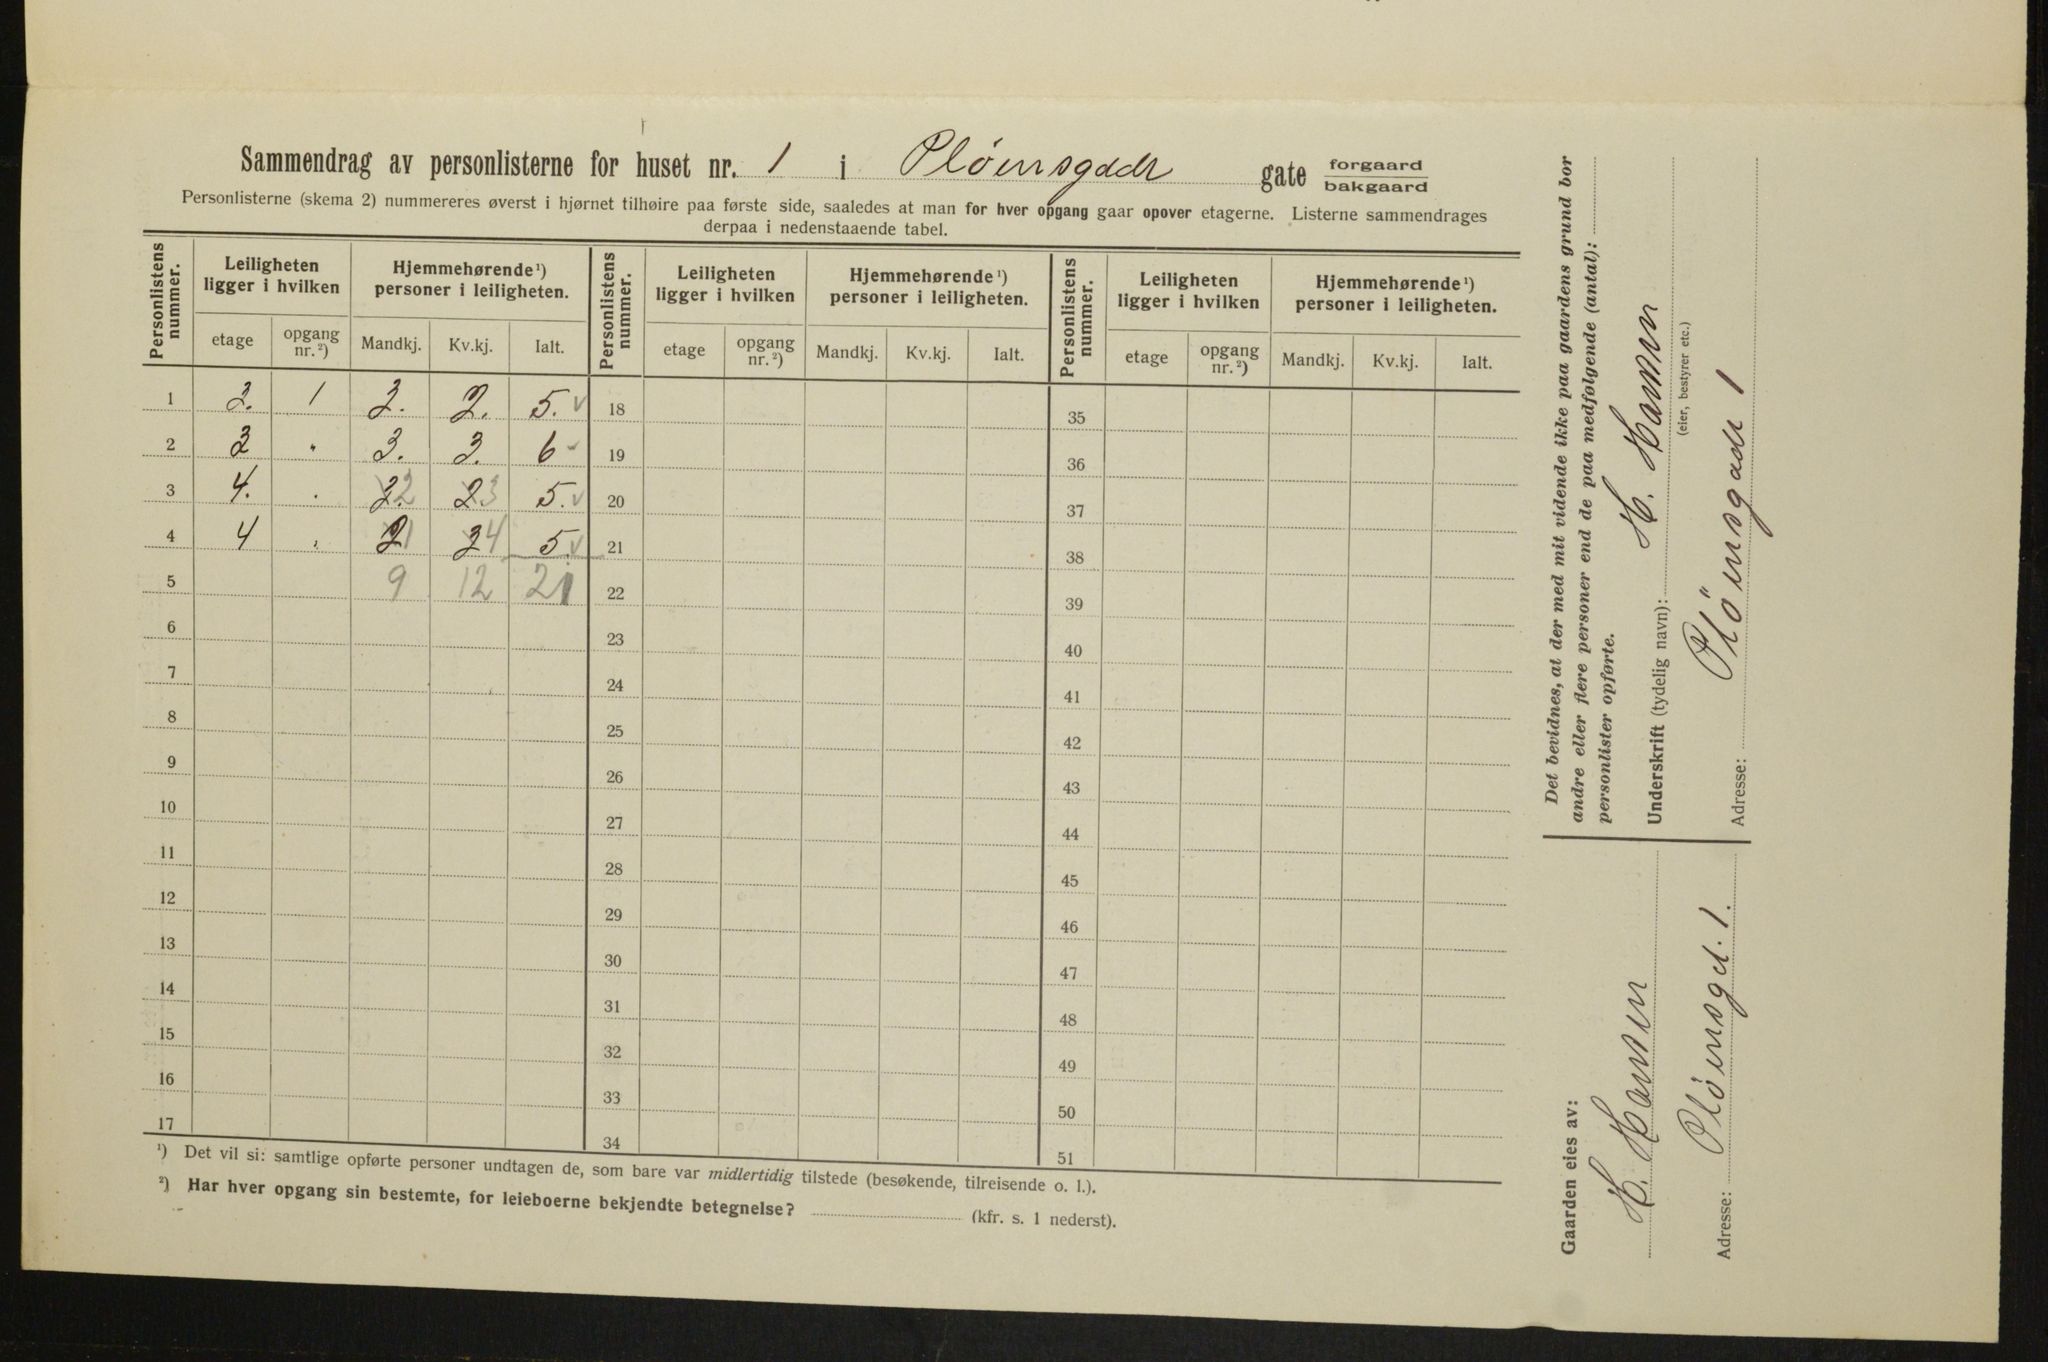 Sammendrag av personlisterne for huset nr. 1 i Pløensgade gate forgaard
bakgaard
Personlisterne (skema 2) nummereres øverst i hjørnet tilhøire paa første side, saaledes at man for hver opgang gaar opover etagerne. Listerne sammendrages
derpaa i nedenstaaende tabel.
Personlistens nummer. Leiligheten ligger i hvilken Hjemmehørende ¹) personer i leiligheten. Personlistens nummer. Leiligheten ligger i hvilken Hjemmehørende ¹) personer i leiligheten. Personlistens nummer. Leiligheten ligger i hvilken Hjemmehørende ¹) personer i leiligheten.
etage opgang nr. ²) Mandkj. Kv.kj. Ialt. etage opgang nr. ²) Mandkj. Kv.kj. Ialt. etage opgang nr. ²) Mandkj. Kv.kj. Ialt.
1 3. 1 3. 2. 5. v 18 35
2 3 " 3. 3. 6 19 36
3 4. . 2 23 5. v 20 37
4 4 . 1 4 5. v 21 38
5 9 12 21 22 39
6 23 40
7 24 41
8 25 42
9 26 43
10 27 44
11 28 45
12 29 46
13 30 47
14 31 48
15 32 49
16 33 50
17 34 51
¹) Det vil si: samtlige opførte personer undtagen de, som bare var midlertidig tilstede (besøkende, tilreisende o. l.).
²) Har hver opgang sin bestemte, for leieboerne bekjendte betegnelse? (kfr. s. 1 nederst).
Det bevidnes, at der med mit vidende ikke paa gaardens grund bor
andre eller flere personer end de paa medfølgende (antal):
personlister opførte.
Underskrift (tydelig navn): H. Hansen
(eier, bestyrer etc.)
Adresse: Pløensgade 1
Gaarden eies av:
H. Hansen
Adresse: Pløensgd. 1.